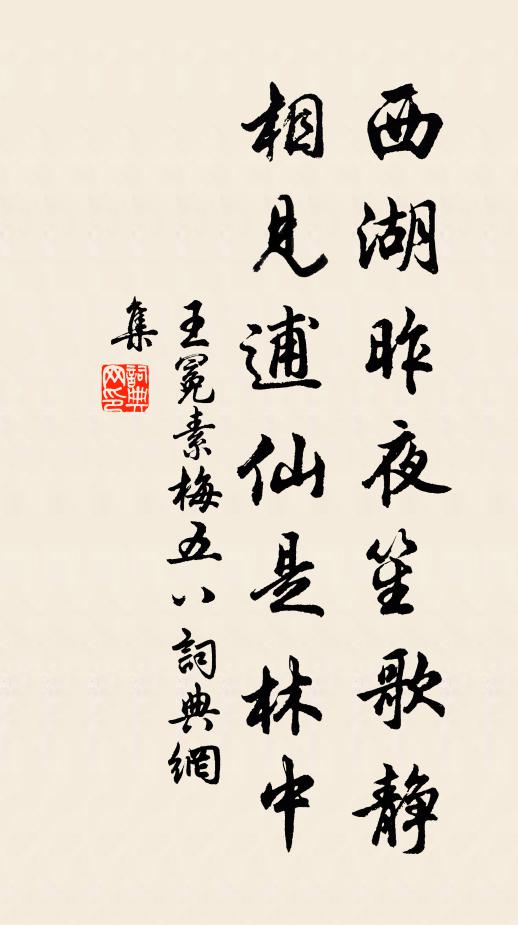 西湖昨夜笙歌静
相見逋仙是林中
王冕素梅五八詞典網
集
詞典
网印